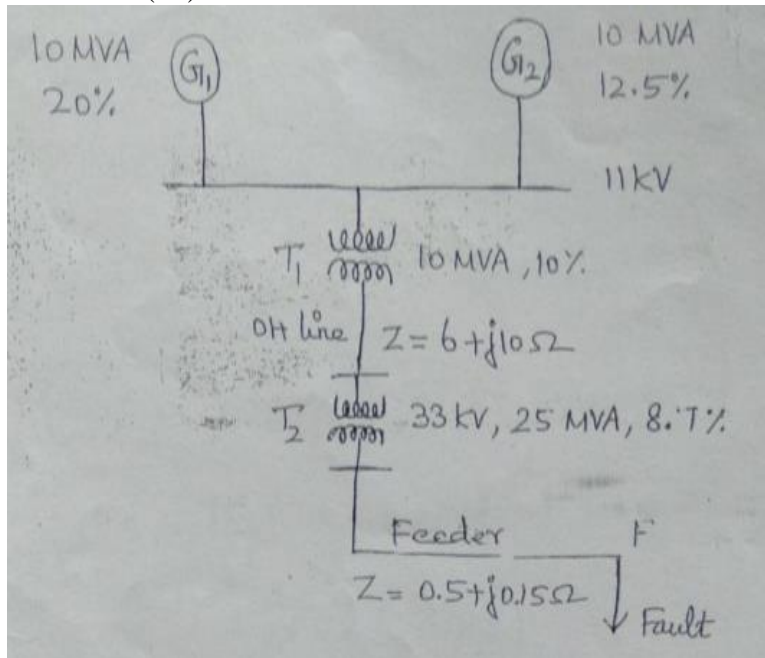 10 MVA
20%
G1
G2
10 MVA
12.5%
11KV
T1
10 MVA, 10%
OH line
Z = 6+j10Ω
T2
33 KV, 25 MVA, 8.7%
Feeder
F
Z = 0.5+j0.15Ω
Fault